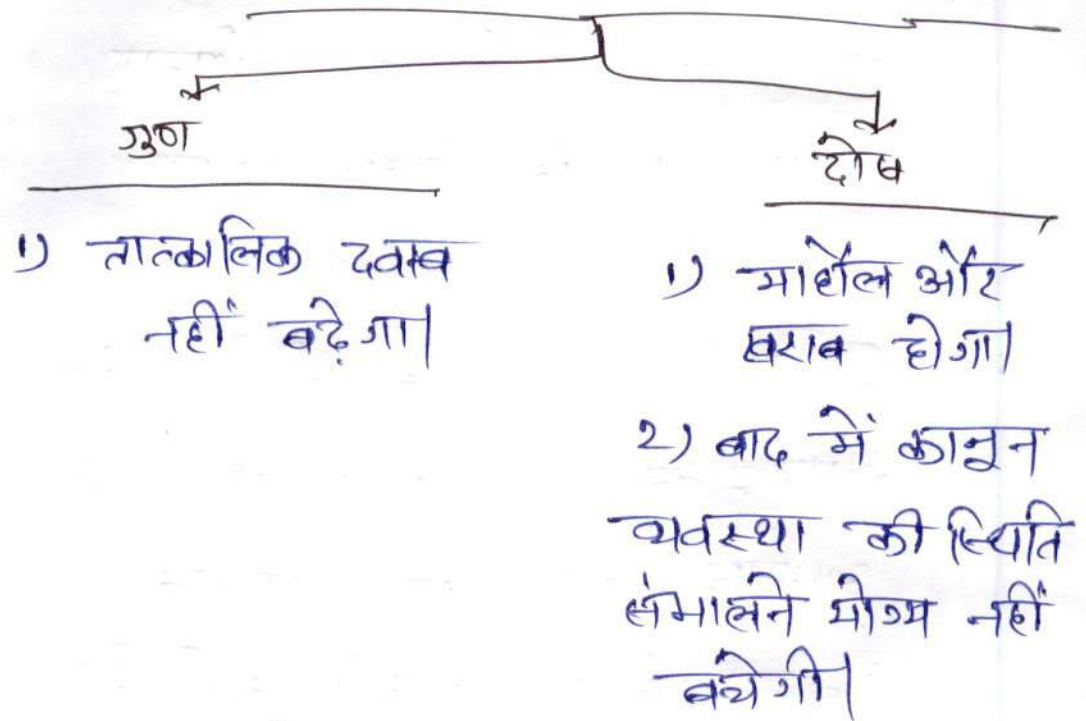 गुण
1) तात्कालिक दवाब
नहीं बढ़ेगा।
दोष
1) माहौल और
खराब होगा।
2) बाद में कानून
व्यवस्था की स्थिति
संभालने योग्य नहीं
बचेगी।